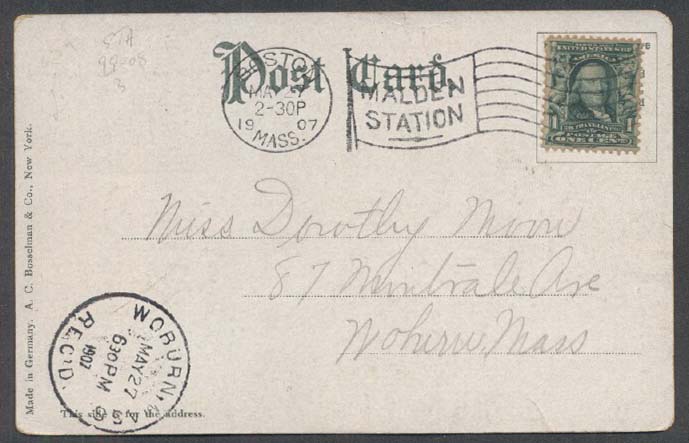 STA
99-08
3
Post Card.
BOSTON
MAY 27
2-30P
1907
MASS.
MALDEN
STATION
UNITED STATES OF AMERICA
FRANKLIN
1 1
POSTAGE
ONE CENT
Miss Dorothy Moore
87 Montvale Ave
Woburn Mass
WOBURN, MASS
MAY 27
630PM
1907
REC'D.
Made in Germany. A. C. Bosselman & Co., New York.
This side is for the address.